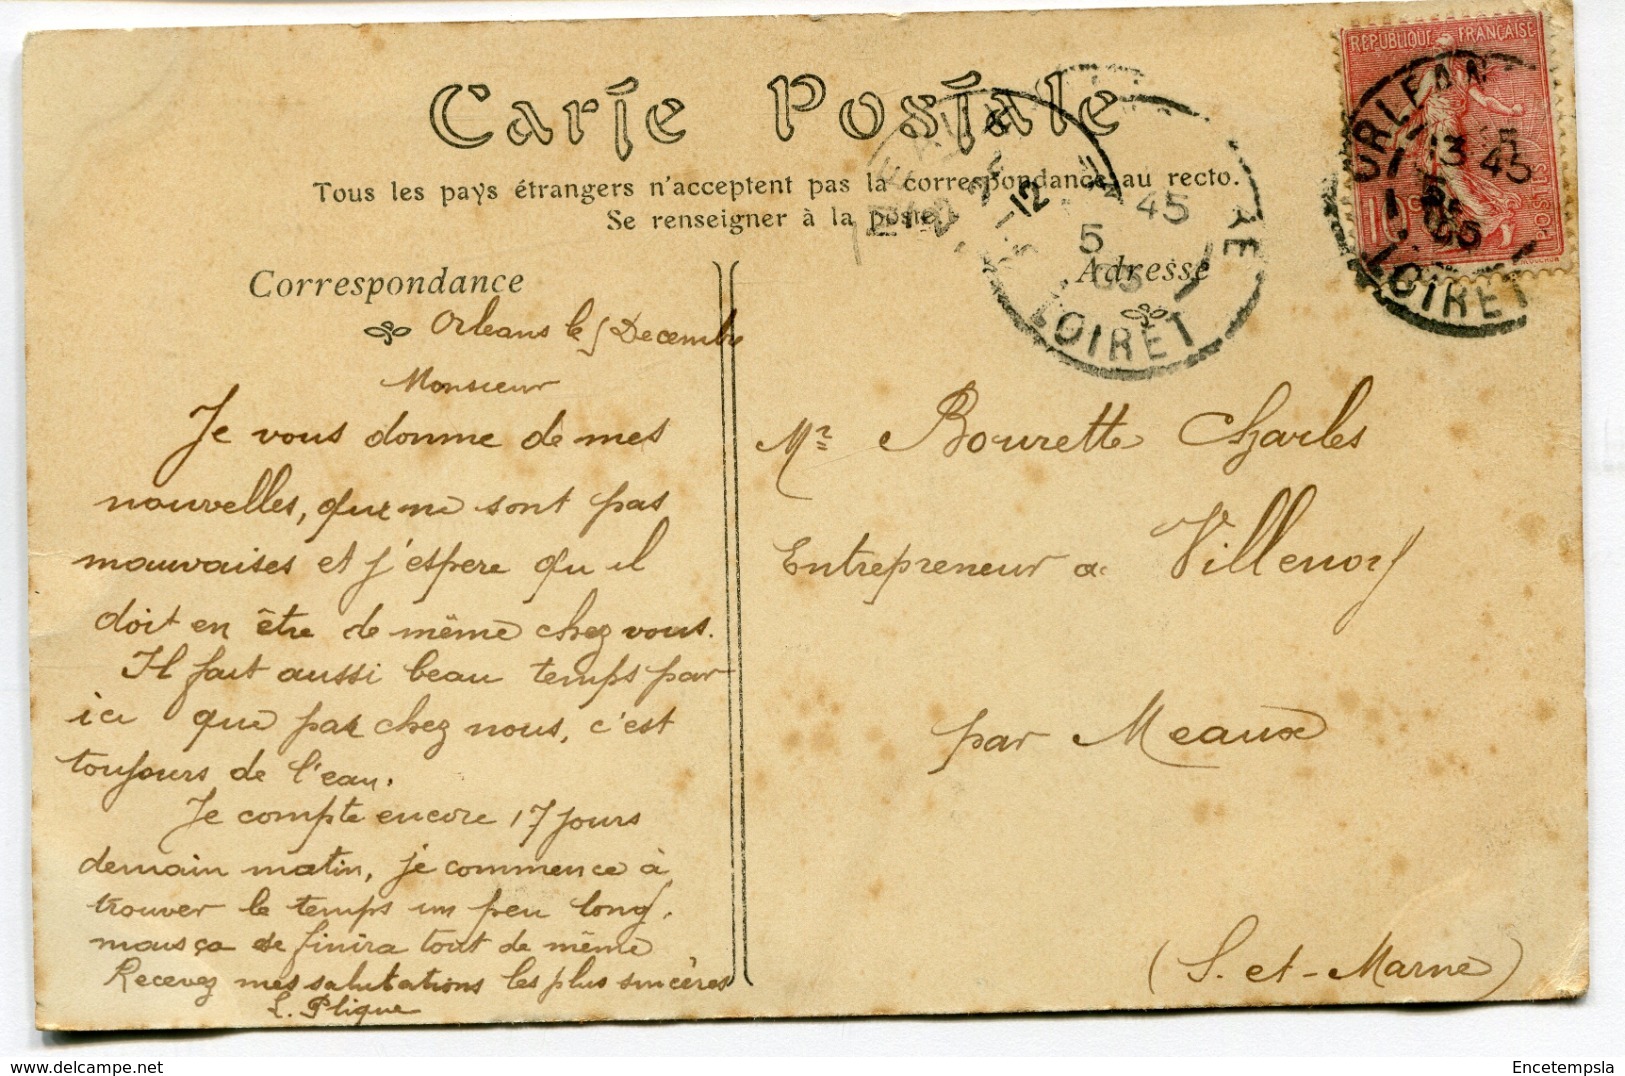 Carte Postale
Tous les pays étrangers n'acceptent pas la correspondance au recto.
Se renseigner à la poste.
Correspondance
Orleans le 5 Decembre
Monsieur
Je vous donne de mes
nouvelles, qui ne sont pas
mauvaises et j'espere qu il
doit en être de même chez vous.
Il fait aussi beau temps par
ici que par chez nous, c'est
toujours de l'eau.
Je compte encore 17 jours
demain matin, je commence à
trouver le temps un peu long,
mais ça se finira tout de même
Recevez mes salutations les plus sincères
L. Plique
Adresse
Mr Bourette Charles
Entrepreneur a Villenoy
par Meaux
(S. et-Marne)
REPUBLIQUE FRANÇAISE
POSTES
10c
ORLEANS
13 45
5
05
LOIRET
45
5
05
LOIRET
12
Encetempsla